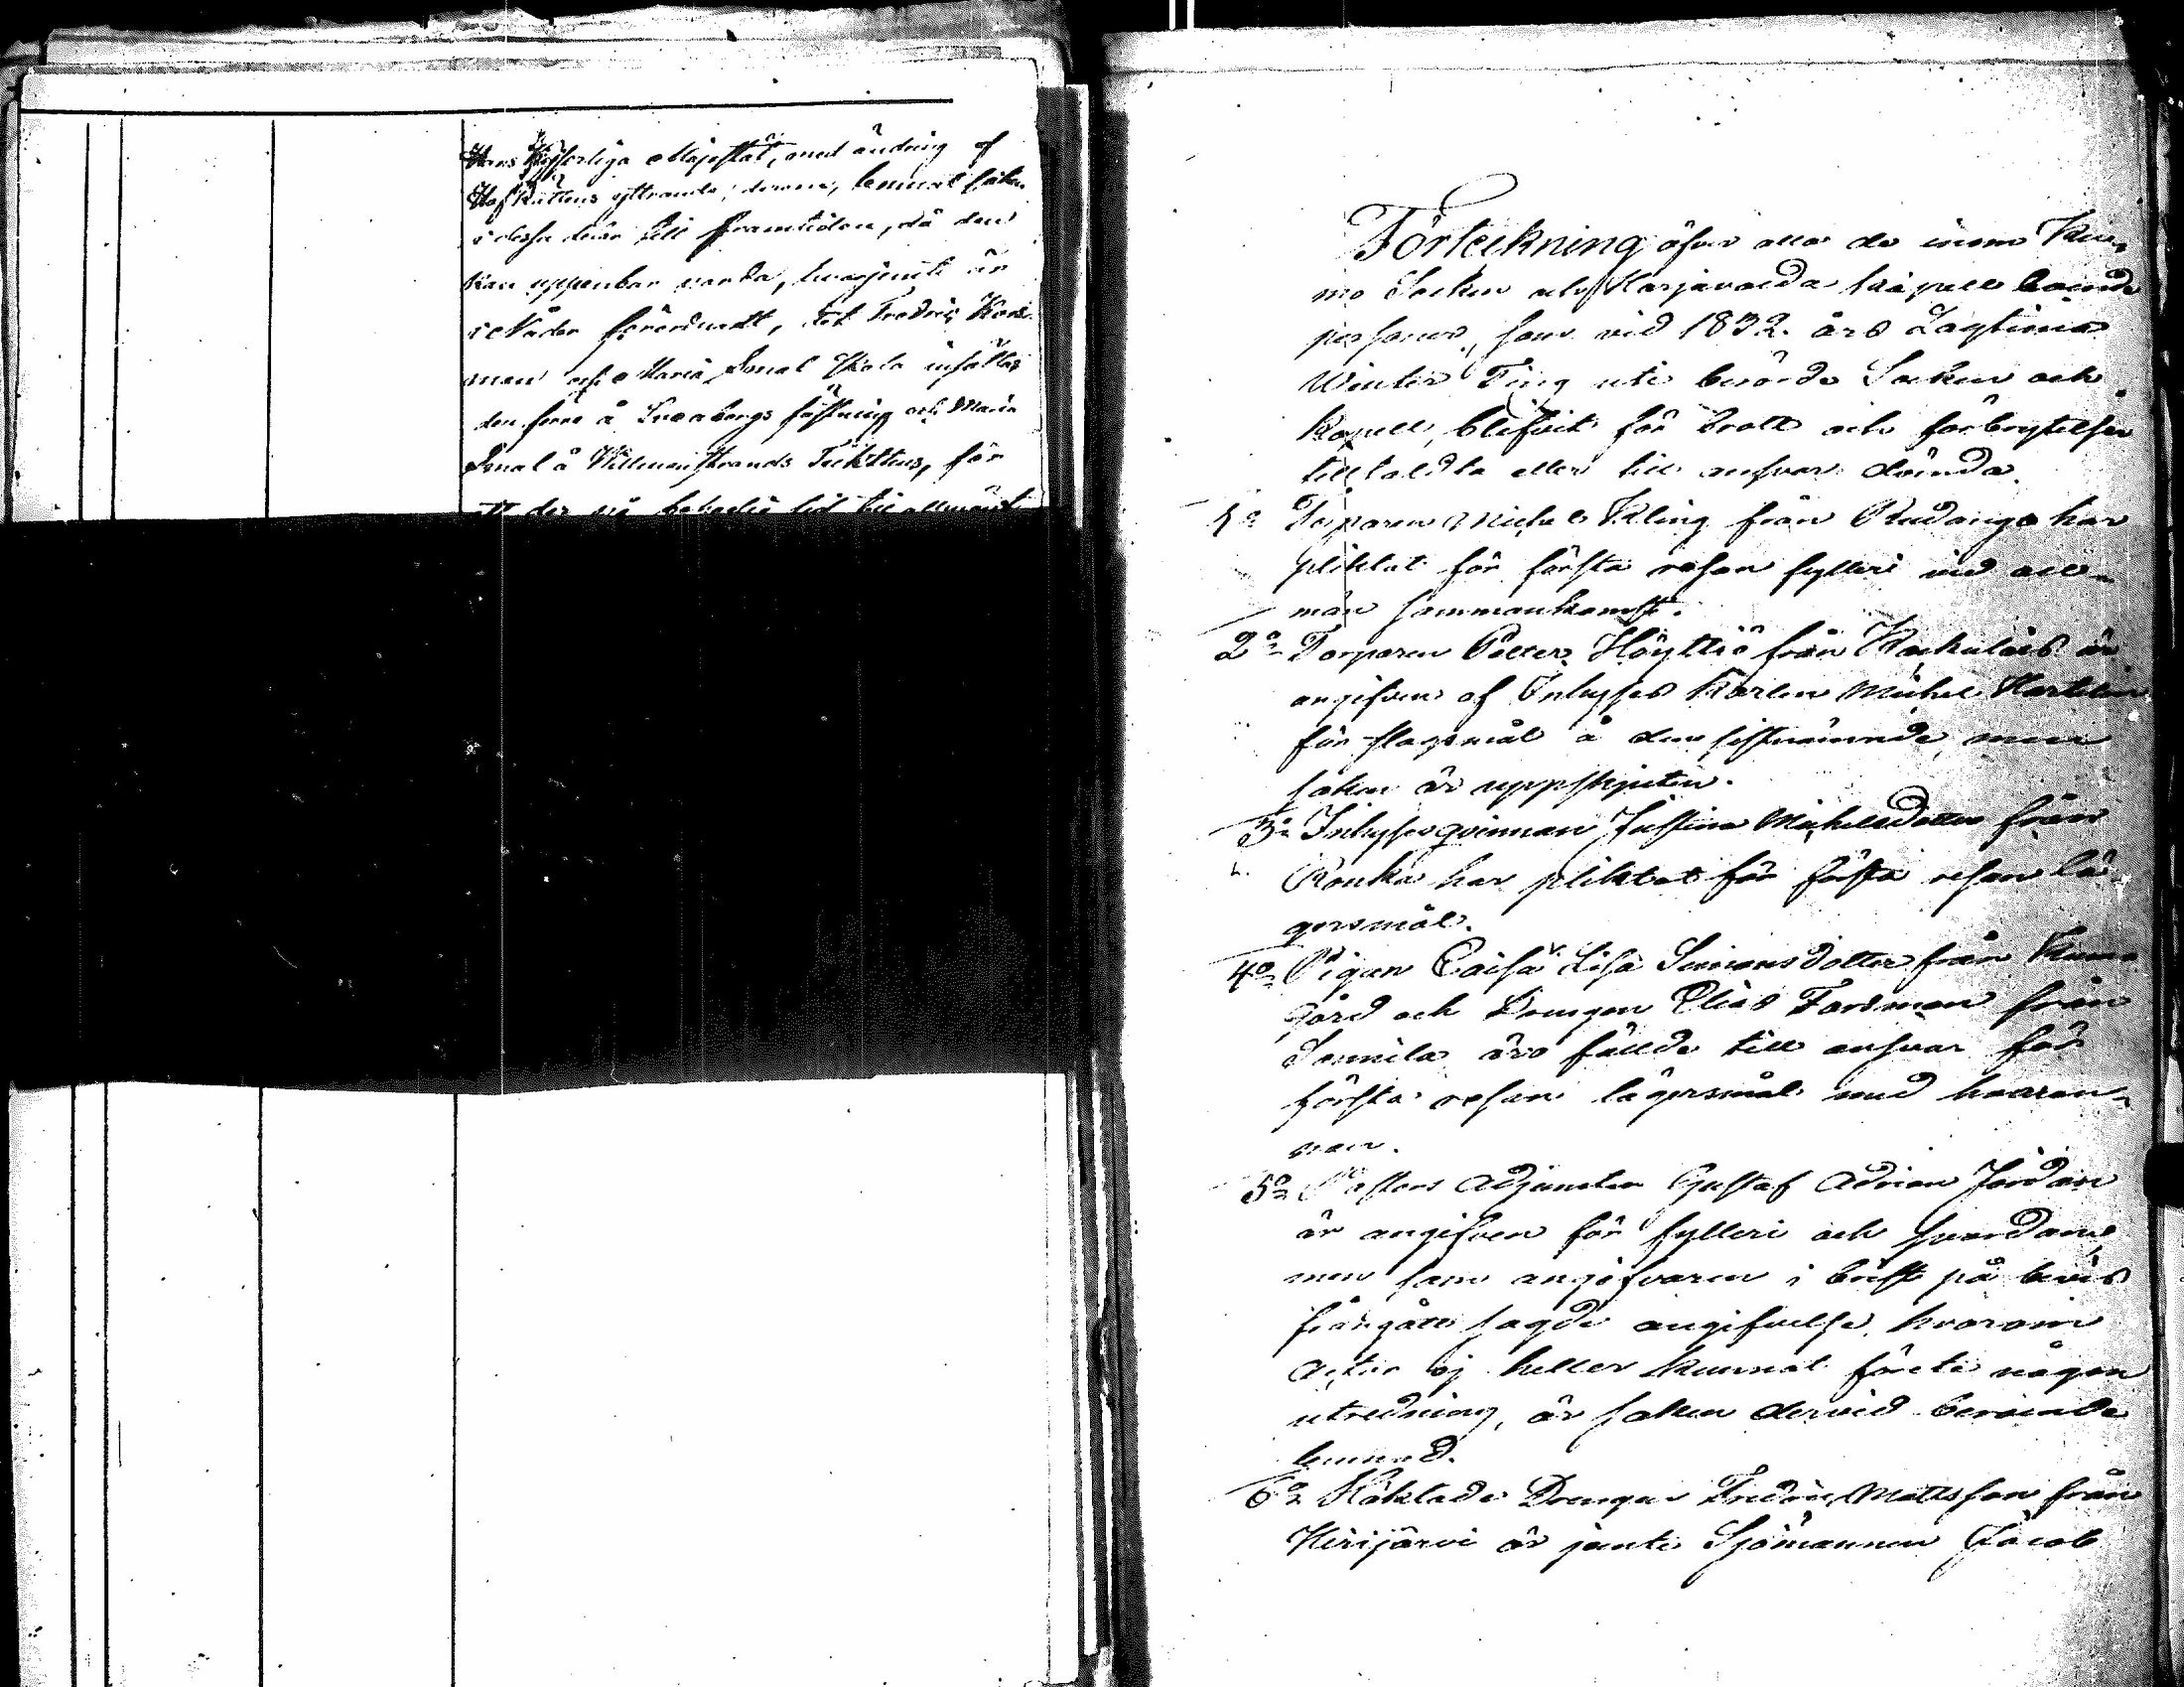 Hans Kejserliga Majestät, med ändring af
HofRättens yttrande, derom, lemnat saken
i dessa delar till framtiden, då den
kan uppenbar varda, hvarjemte är
i Nåder förordnadt, att Fredric Kors-
man och Maria Ismal Skola insättas
den förre å Sveaborgs fästning och Maria
Ismal å Willmanstrands Tukthus, för
att der på behaglig tid till allmänt
Förteckning öfver alla de inom Kiu-
mo Socken och Harjavalda kapell boende
personer, som vid 1832 års Lagtima
Winter Ting uti berörde Socken och
Kapell, blifvit för brott och förbrytelser
tilltaldta eller till ansvar dömda.
1o Torparen Michel Kling från Rudanga har
pliktat för första resan fylleri vid all-
män sammankomst.
2o Torparen Petter Höyttiö från Kaukulais är
angifven af Inhyses Karlen Michel Martelin
för slagsmål å den sistnämnde, men
saken är uppskjuten.
3o Inhyses qvinnan Justina Michelsdotter från
Ronka har pliktat för första resan lä-
gersmål.
4o Pigan Caisa Lisa Simonsdotter från Kiumo
Gård och Drengen Elias Forsman från
Sonnila äro fällde till ansvar för
första resan lägersmål med hvaran-
nan.
5o Pastors Adjuncten Gustaf Adrian Jordan
är angifven för fylleri och svordom,
men som angifvaren i brist på bevis
frångått sagde angifvelse, hvarom
Actor ej heller kunnat förete någon
utredning, är saken dervid beroende
lemnad.
6o Häktade Drengen Fredric Mattsson från
Kirijärvi är jemte Sjömannen Jacob